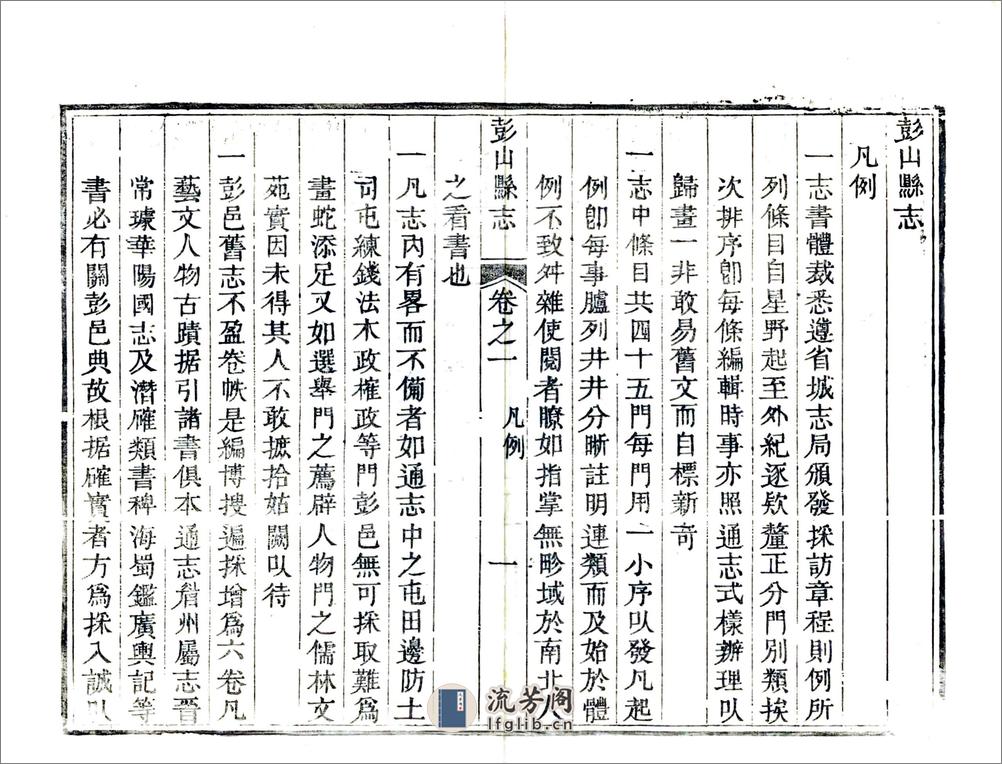 彭山縣志
凡例
一志書體裁悉遵省城志局頒發採訪章程則例所
列條目自星野起至外紀逐欵釐正分門別類挨
次排序卽每條編輯時事亦照通志式樣辦理以
歸畫一非敢易舊文而自標新奇
一志中條目共四十五門每門用一小序以發凡起
例卽每事臚列井井分晰註明連類而及始於體
例不致舛雜使閱者瞭如指掌無畛域於南北人
彭山縣志
卷之一
凡例
一
之看書也
一凡志內有畧而不備者如通志中之屯田邊防土
司屯練錢法木政榷政等門彭邑無可採取難為
畫蛇添足又如選舉門之薦辟人物門之儒林文
苑實因未得其人不敢摭拾姑闕以待
一彭邑舊志不盈卷帙是編博搜遍採增為六卷凡
藝文人物古蹟据引諸書俱本通志眉州屬志晋
常璩華陽國志及潛確類書稗海蜀鑑廣輿記等
書必有關彭邑典故根据確實者方為採入誠以
流芳阁
lfglib.cn